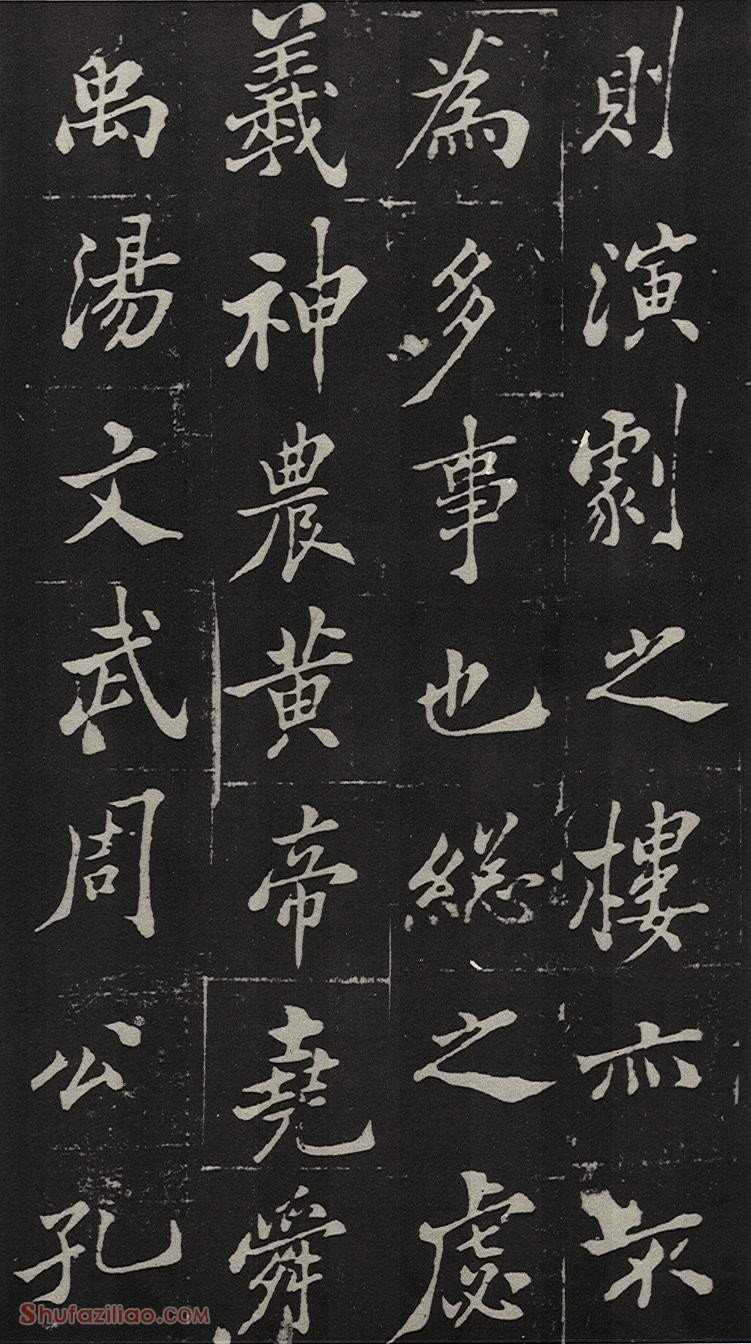 則演劇之樓亦不
為多事也總之虙
羲神農黄帝堯舜
禹湯文武周公孔
Shufaziliao.com